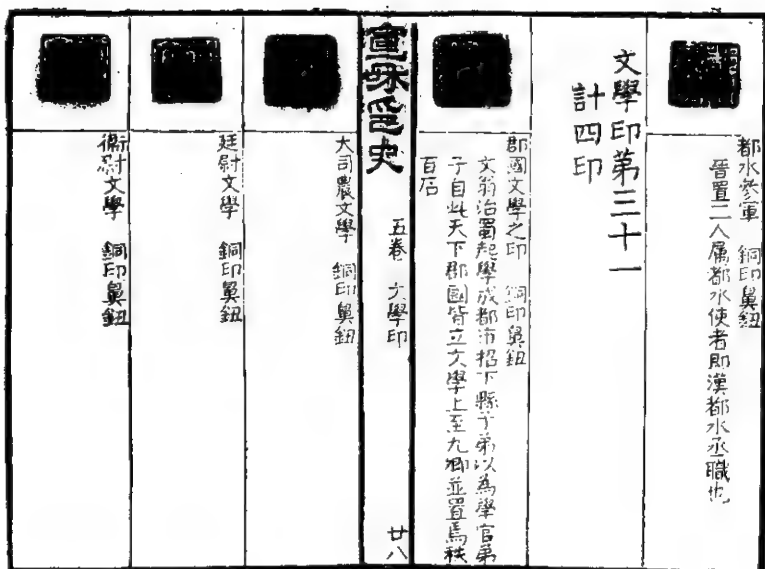 都水參軍　銅印鼻鈕
晉置二人属都水使者即漢都水丞職也
文學印第三十一
計四印
郡國文學之印　銅印鼻鈕
文翁治蜀起學成都市招下縣子弟以為學官弟
子自此天下郡國皆立文學上至九卿並置焉秩
百石
宣和印史　五卷　文學印　廿八
大司農文學　銅印鼻鈕
廷尉文學　銅印鼻鈕
衛尉文學　銅印鼻鈕